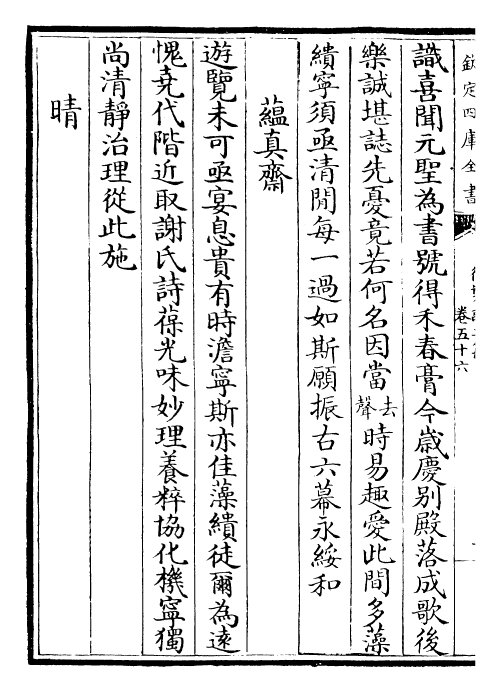 欽定四庫全書
卷五十六
識喜聞元聖為書號得禾春膏今歲慶别殿落成歌後
樂誠堪誌先憂竟若何名因當去聲時易趣愛此間多藻
繢寧須亟清閒每一過如斯願振古六幕永綏和
蘊真齋
遊覽未可亟宴息貴有時澹寧斯亦佳藻繢徒爾為逺
愧堯代階近取謝氏詩葆光味妙理養粹協化機寧獨
尚清靜治理從此施
晴